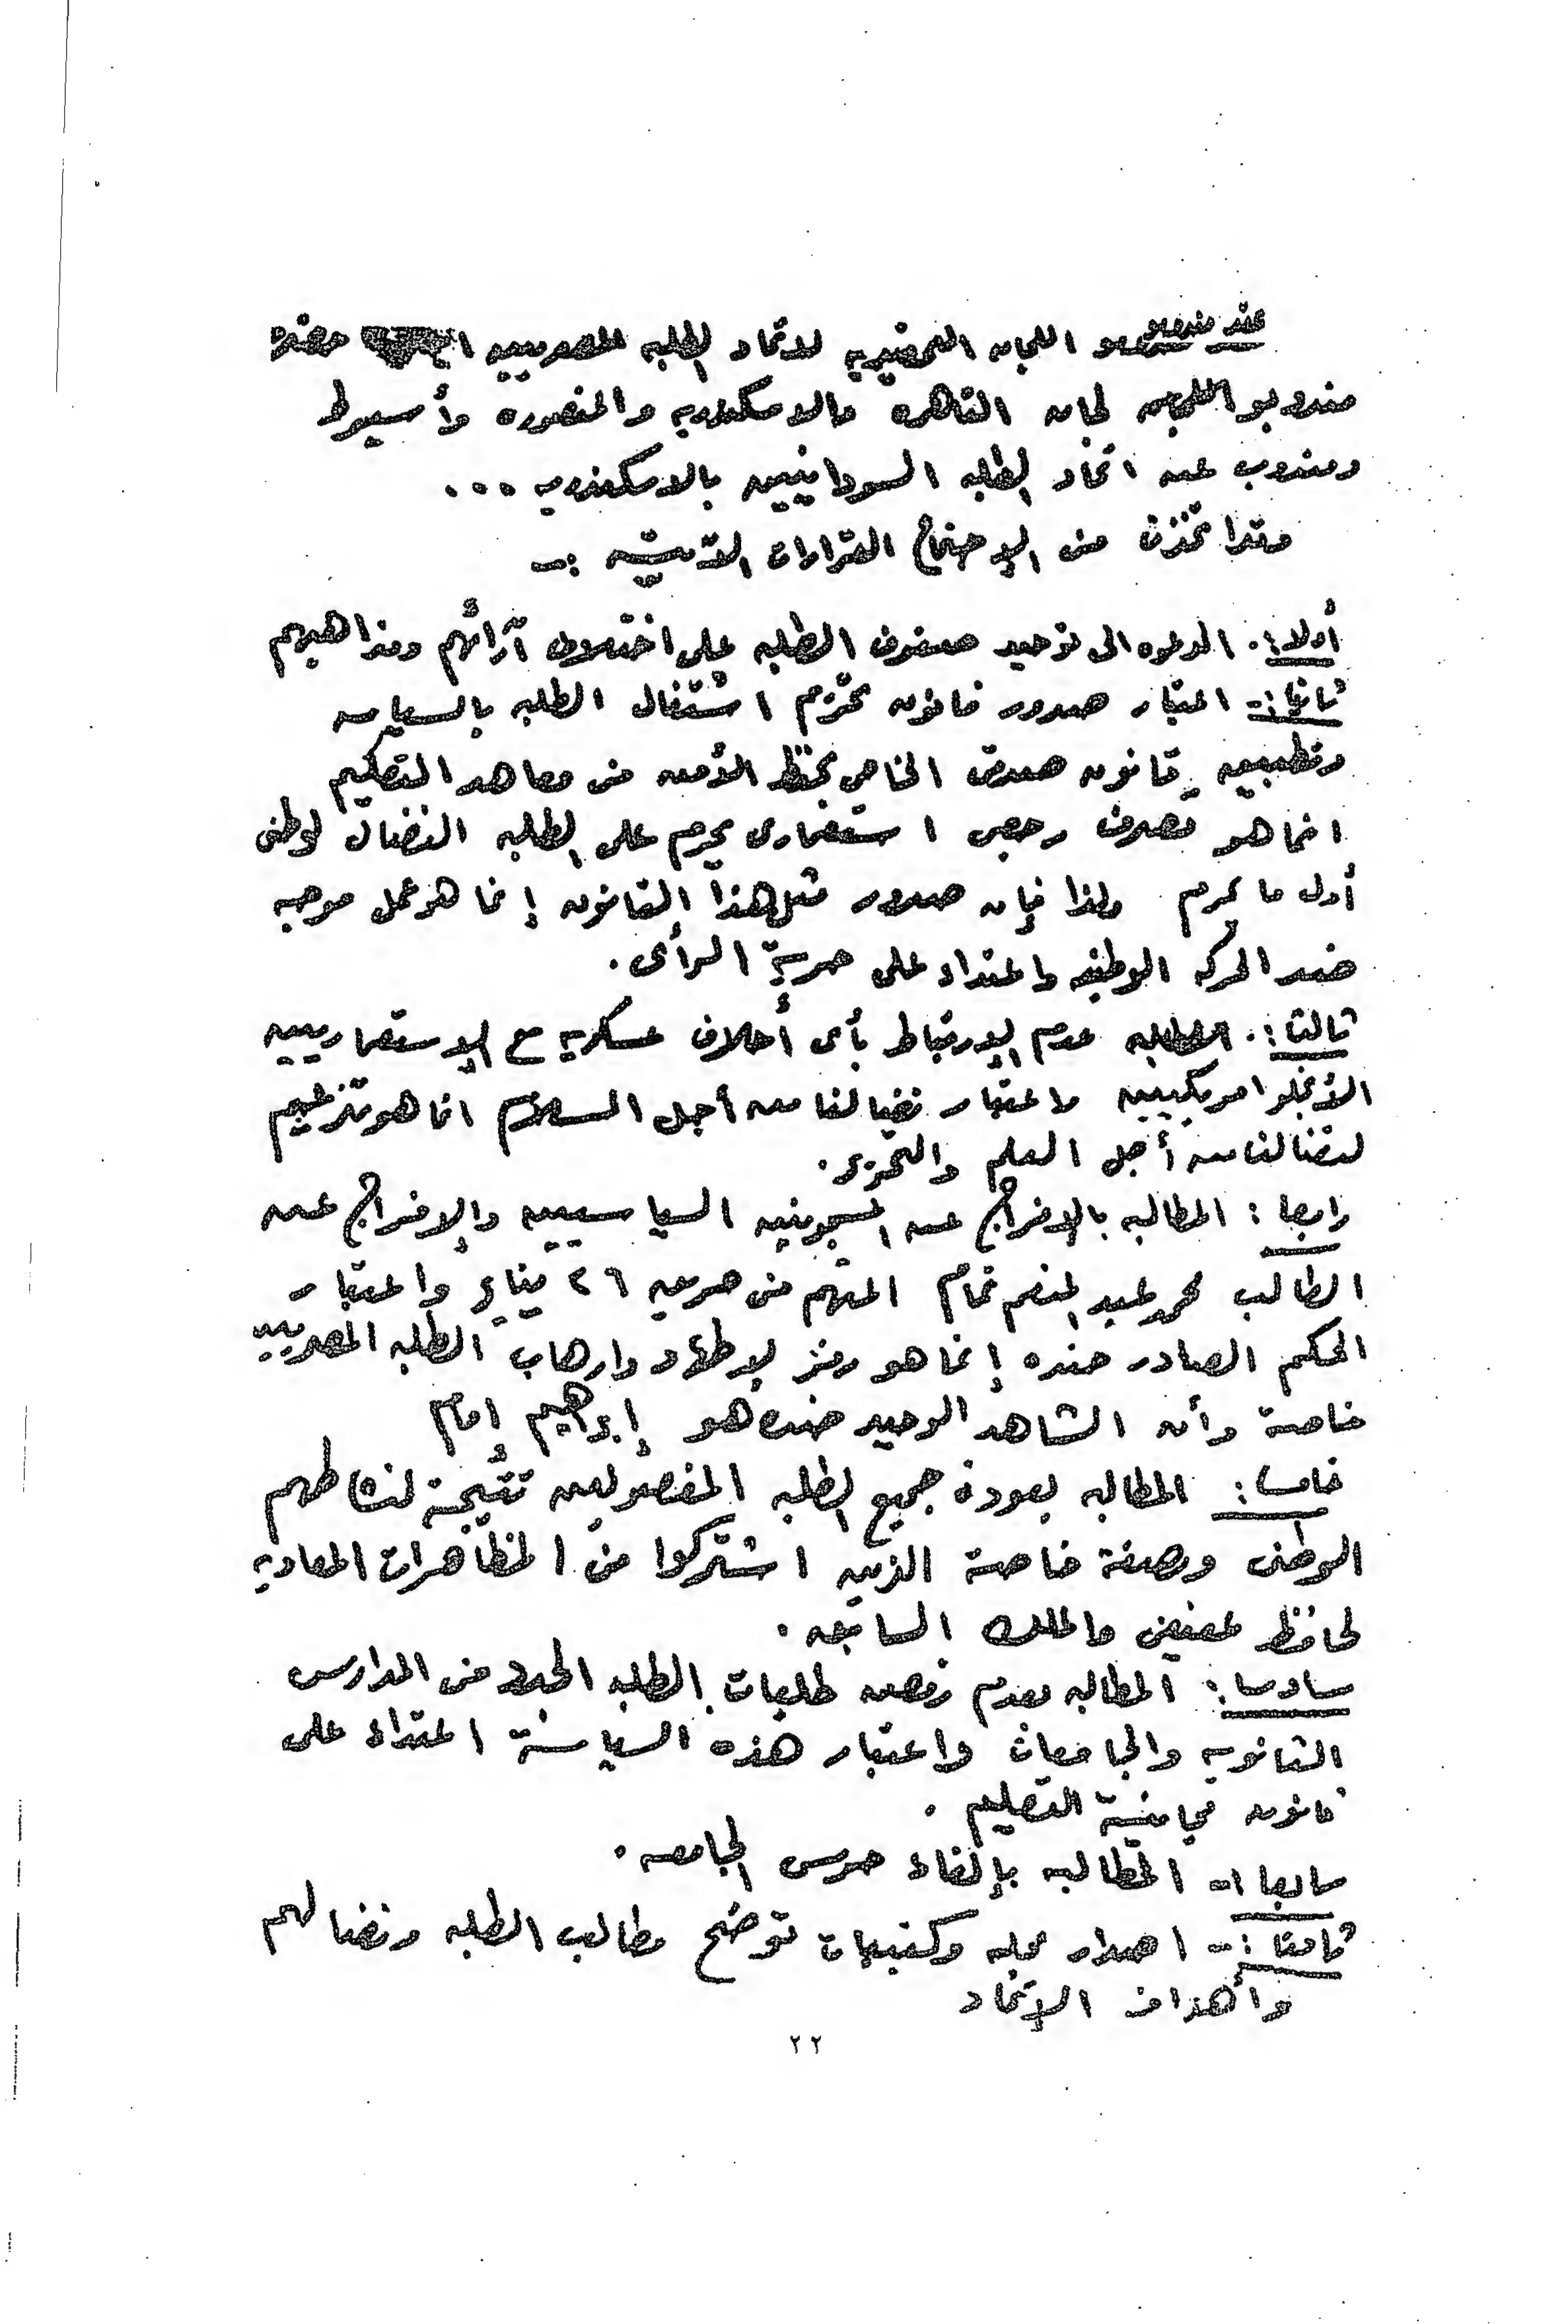 عقد مندوبو اللجان التحضيرية لاتحاد الطلبه المصريين حضره
مندوبو لجان القاهره والاسكندريه والمنصوره وأسيوط
ومندوب عن اتحاد الطلبه السودانيين بالاسكندريه ...
وقد اتخذت فى الإجتماع القرارات الآتيه :ـ
أولا :. الدعوه الى توحيد صفوف الطلبه على اختلاف آرائهم ومذاهبهم
ثانيا :- اعتبار صدور قانون تحريم اشتغال الطلبه بالسياسه
وتطبيق قانون صدقى الخاص بحفظ الأمن فى معاهد التعليم
انما هو تصرف رجعى استعمارى يحرم على الطلبه النضال لوطنى
أول ما يحرم ولذا فإن صدور مثل هذا القانون إنما هو عمل موجه
ضد الحركه الوطنيه واعتداء على حرية الرأى .
ثالثا :. المطالبه عدم الإرتباط بأى أحلاف عسكريه مع الإستعماريين
الأنجلوامريكيين واعتبار نضالنا من أجل السلام انما هو تدعيم
لنضالنا من أجل العلم والتحرير .
رابعا : المطالبه بالإفراج عن المسجونين السياسيين والإفراج عن
الطالب محمد عبد المنعم تمام المتهم فى حريق ٢٦ يناير واعتبار
الحكم الصادر ضده إنما هو رمز لإضطهاد وارهاب الطلبه المصريين
خاصة وأن الشاهد الوحيد ضده هو إبراهيم إمام
خامسا : المطالبه بعودة جميع الطلبه المفصولين نتيجة لنشاطهم
الوطنى وبصفة خاصة الذين اشتركوا فى المظاهرات المعاديه
لحافظ عفيفى والملك السابق .
سادسا : المطالبه بعدم رفض طلبات الطلبه الجدد فى المدارس
الثانويه والجامعات واعتبار هذه السياسة اعتداء على
قانون مجانية التعليم .
سابعا :- المطالبه بإلغاء حرس الجامعه .
ثامنا :- اصدار مجله وكتيبات توضح مطالب الطلبه ونضالهم
وأهداف الإتحاد
٢٢